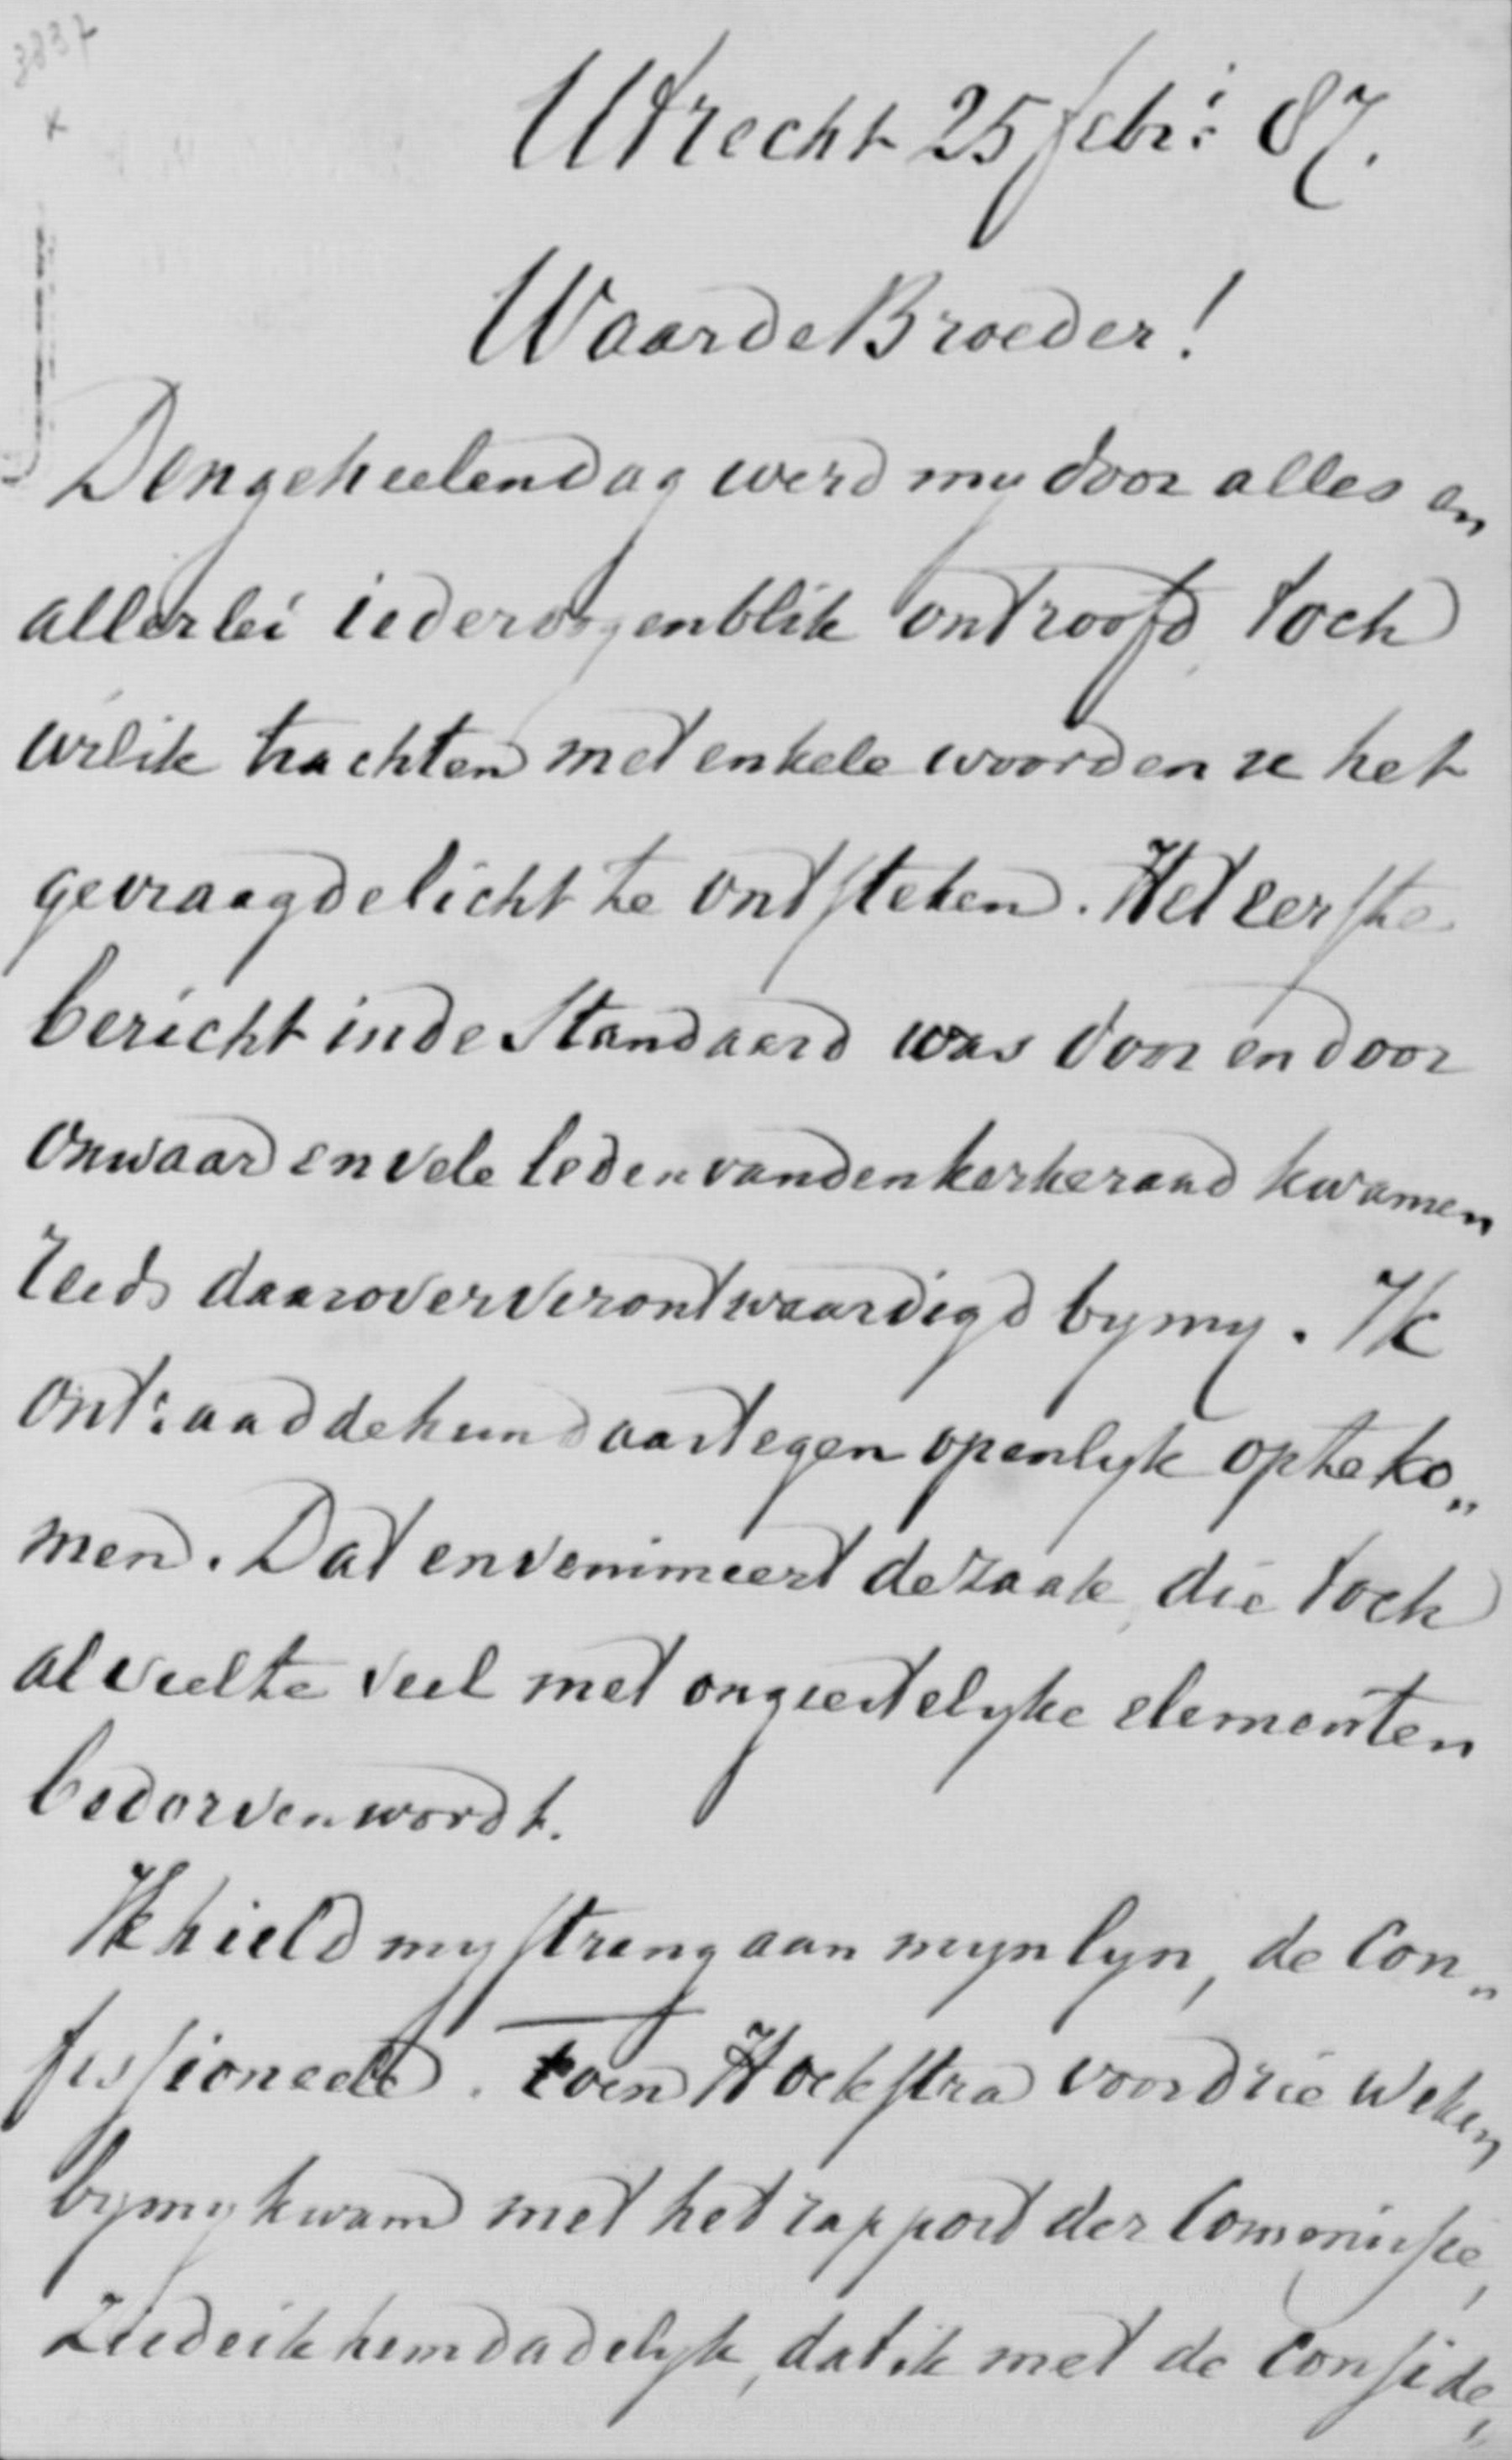 3837
x
Utrecht 25 febr: 87.
Waarde Broeder!
Den geheelen dag werd my door alles en
allerlei ieder oogenblik ontroofd, toch
wil ik trachten met enkele woorden U het
gevraagde licht te ontsteken. Het eerste
bericht in de Standaard was door en door
onwaar en vele leden van den kerkeraad kwamen
reeds daarover verontwaardigd by my. Ik
ontraadde hun daartegen openlyk op te ko„
men. Dat envenimeert de zaak, die toch
al veel te veel met ongeestelyke elementen
bedorven wordt.
Ik hield my streng aan myn lyn, de Con„
fessioneele. Toen Hoekstra voor drie weken
by my kwam met het rapport der Commissie,
zeide ik hem dadelyk, dat ik met de Conside„